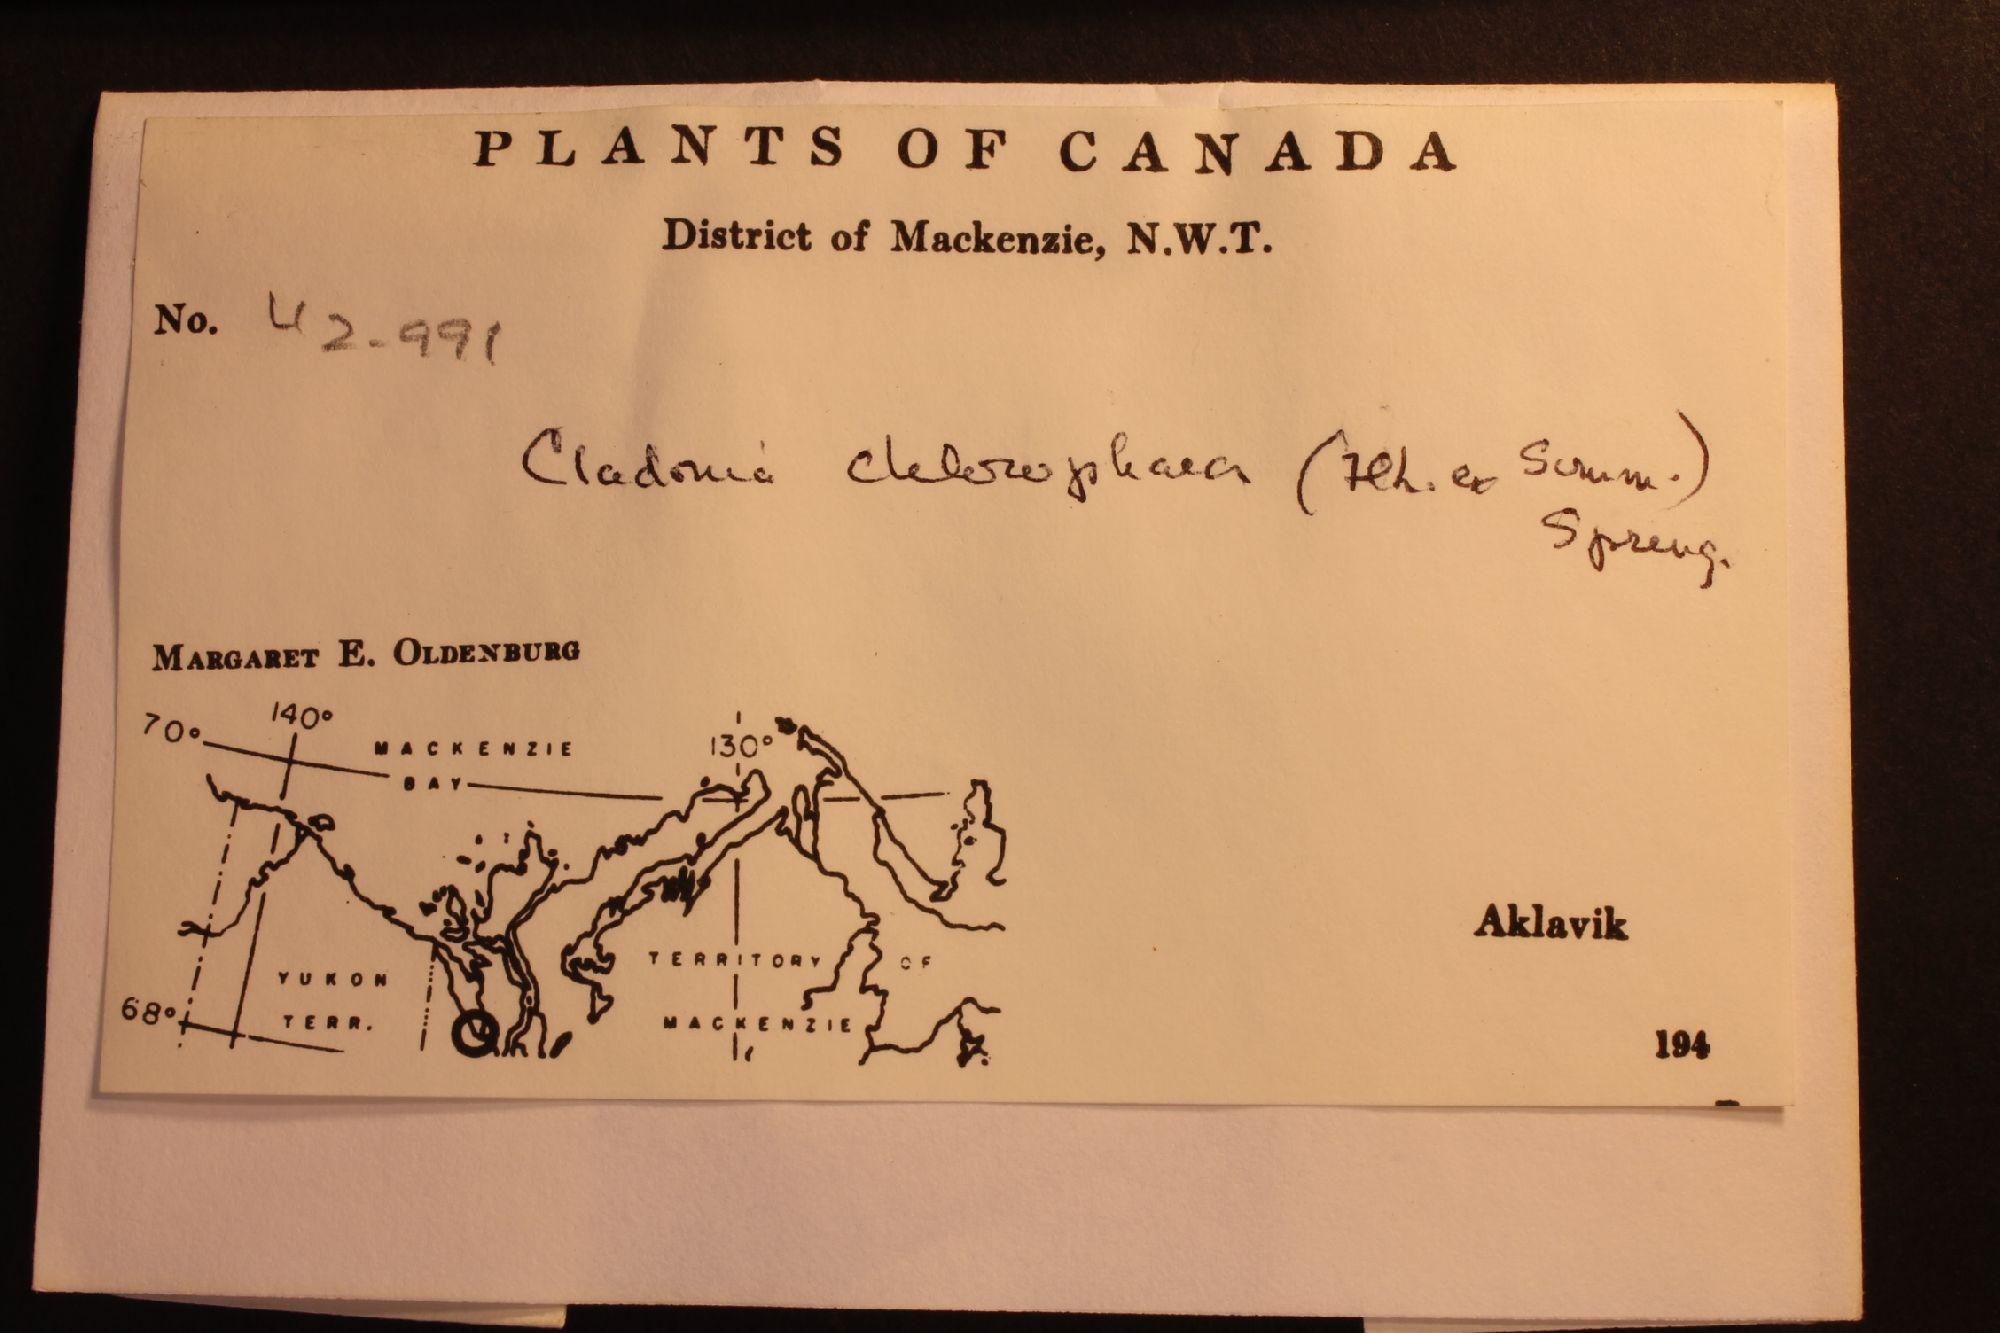 PLANTS OF CANADA
District of Mackenzie, N.W.T.
No. 42-991
Cladonia chlorophaea (Flk. ex Somm.)
Spreng.
MARGARET E. OLDENBURG
70° 140° MACKENZIE BAY 130°
YUKON TERR.
TERRITORY OF MACKENZIE
68°
Aklavik
194